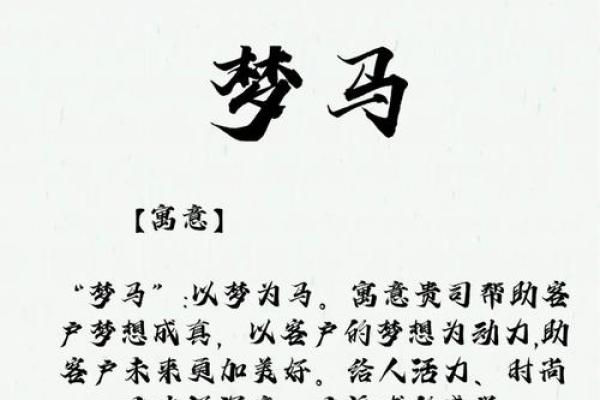 梦马
【寓意】
“梦马”:以梦为马。寓意贵司帮助客
户梦想成真，以客户的梦想为动力,助
客户未来更加美好。给人活力、时尚